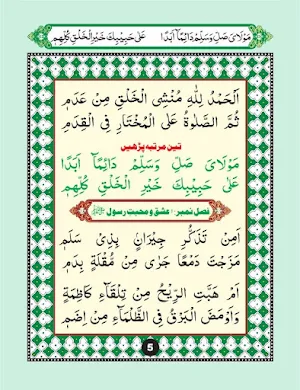 مَوْلَایَ صَلِّ وَسَلِّمْ دَائِمًا اَبَدًا عَلٰی حَبِیْبِكَ خَیْرِ الْخَلْقِ كُلِّهِمِ
اَلْحَمْدُ لِلّٰهِ مُنْشِی الْخَلْقِ مِنْ عَدَمِ
ثُمَّ الصَّلٰوةُ عَلَی الْمُخْتَارِ فِی الْقِدَمِ
تین مرتبہ پڑھیں
مَوْلَایَ صَلِّ وَسَلِّمْ دَائِمًا اَبَدًا
عَلٰی حَبِیْبِكَ خَیْرِ الْخَلْقِ كُلِّهِمِ
فصل نمبر ۱: عشق و محبتِ رسول ﷺ
اَمِنْ تَذَكُّرِ جِیْرَانٍ بِذِیْ سَلَمِ
مَزَجْتَ دَمْعًا جَرٰی مِنْ مُّقْلَةٍ بِدَمِ
اَمْ هَبَّتِ الرِّیْحُ مِنْ تِلْقَاءِ كَاظِمَةٍ
وَاَوْمَضَ الْبَرْقُ فِی الظَّلْمَاءِ مِنْ اِضَمِ
5